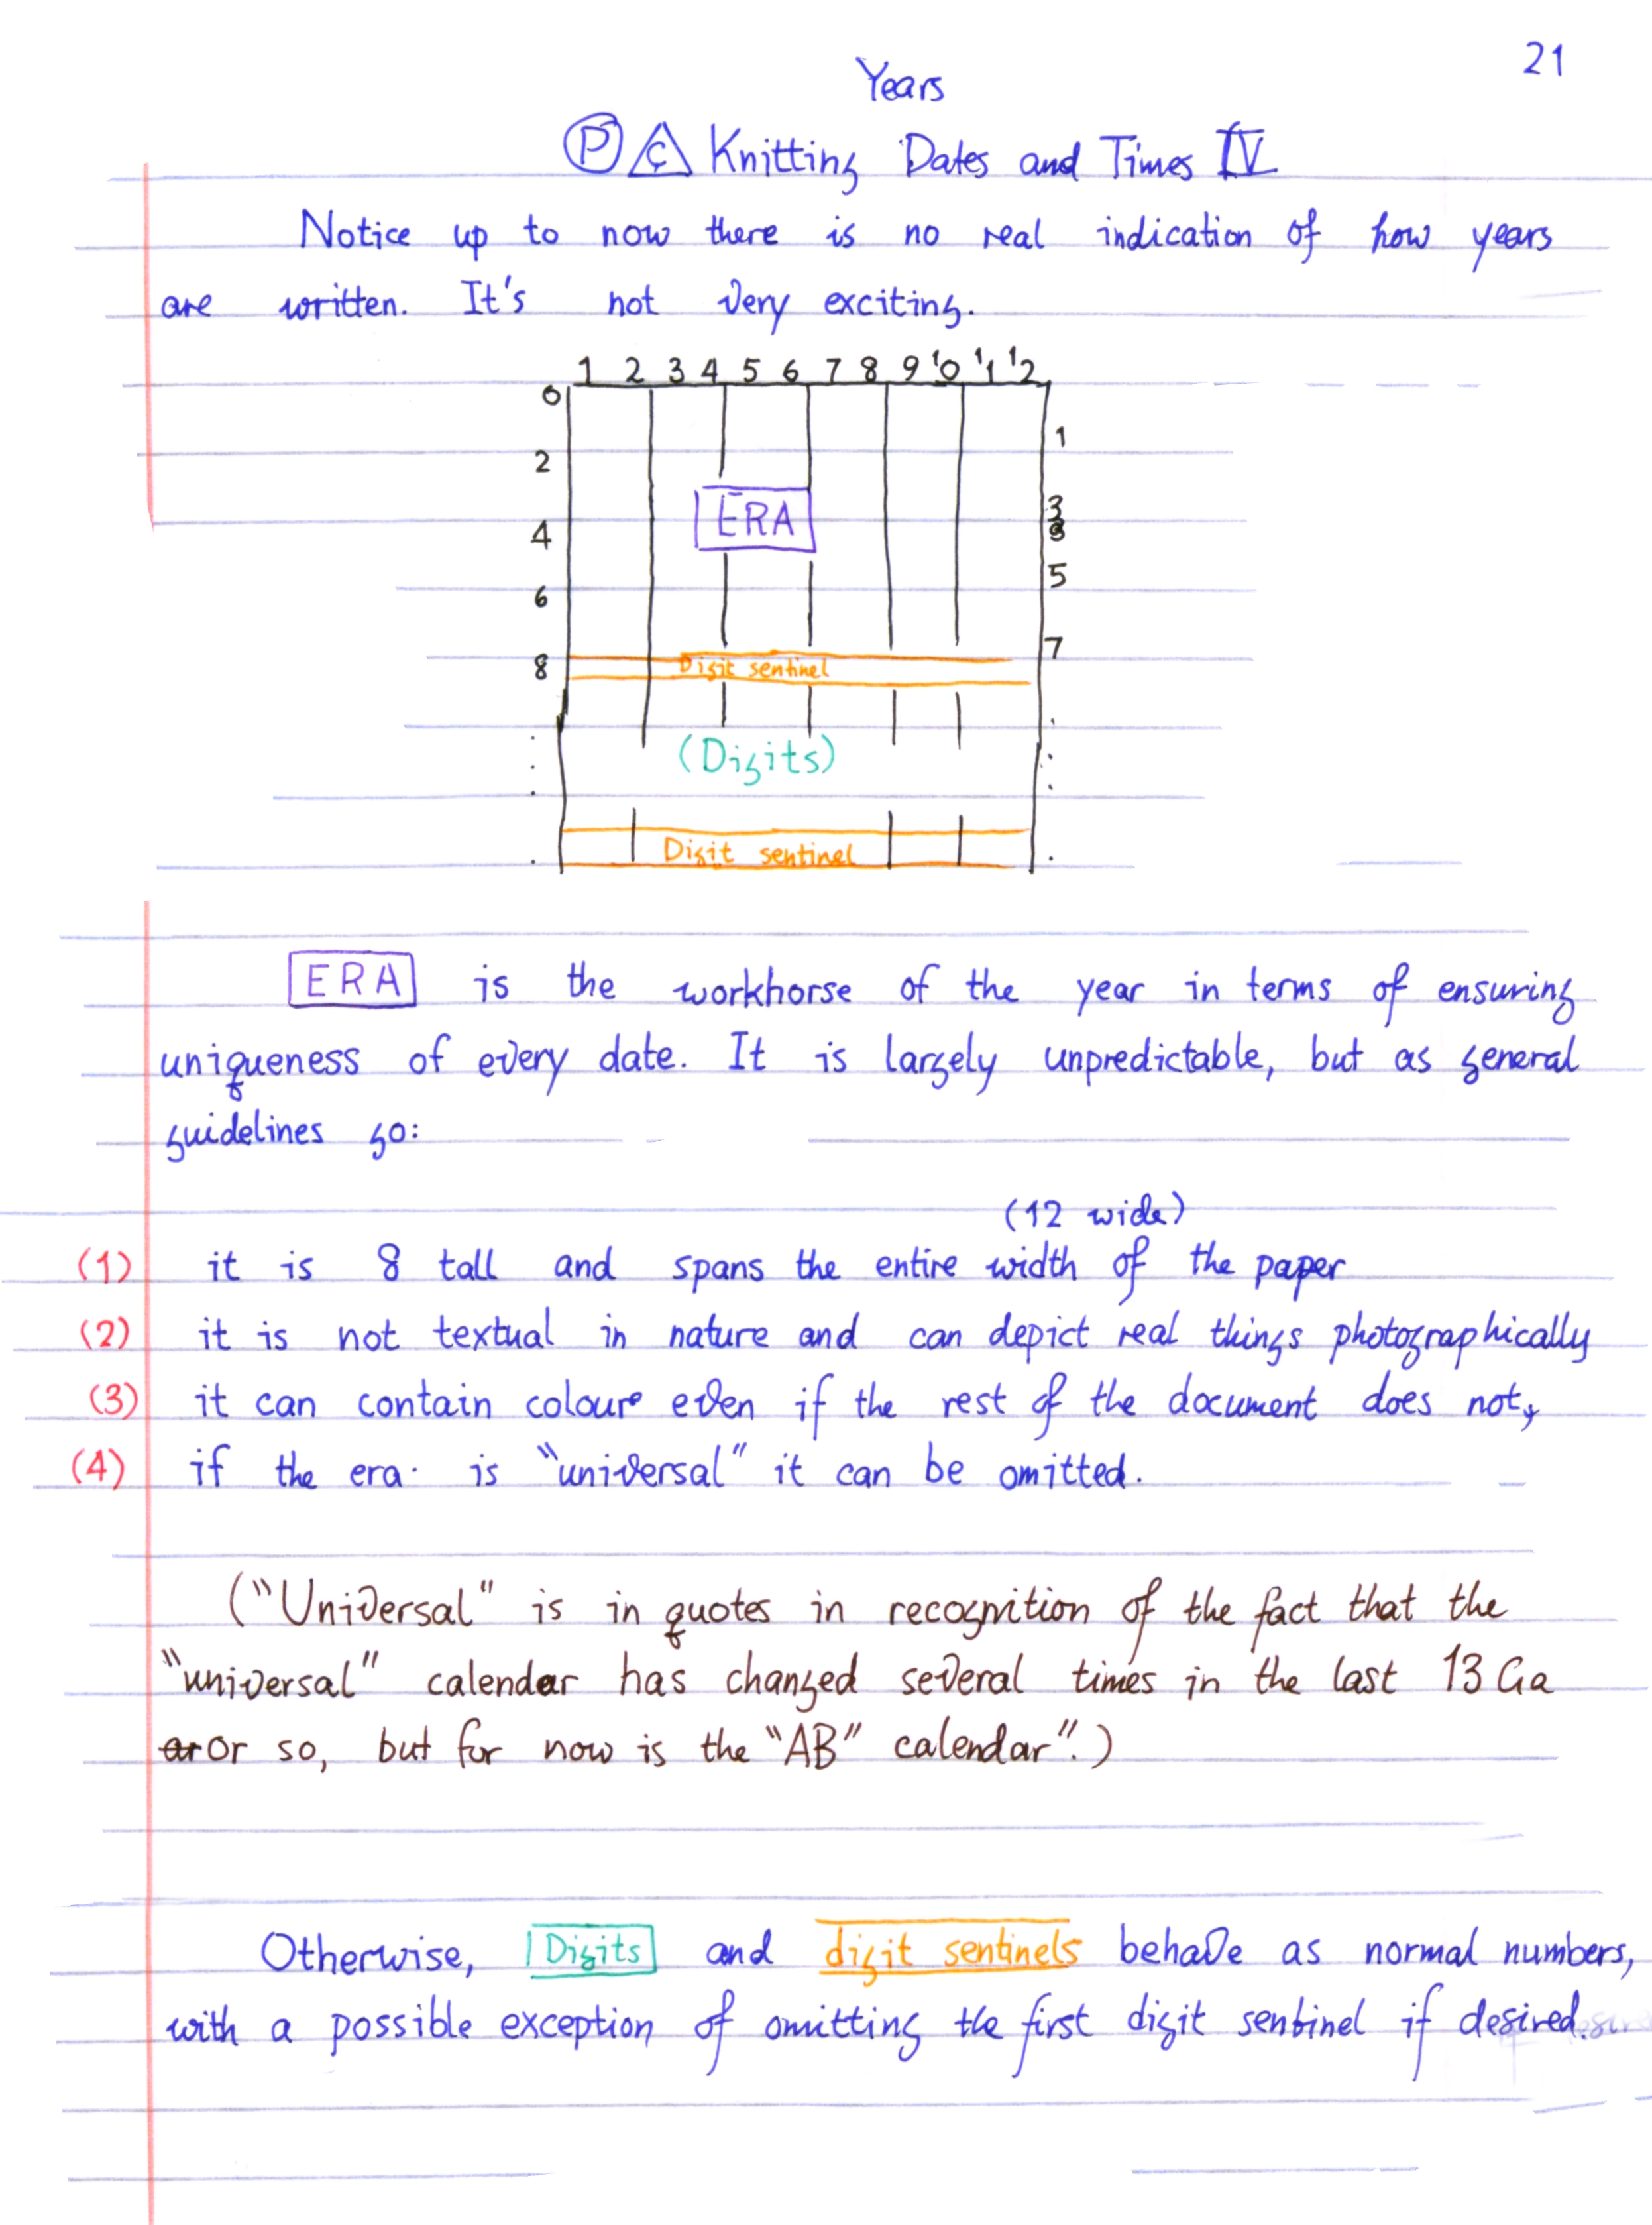 21
Years
Ⓟ ₵ Knitting Dates and Times IV
Notice up to now there is no real indication of how years
are written. It's not very exciting.
1 2 3 4 5 6 7 8 9 10 11 12
0
1
2
3
ERA
4
5
6
7
8 Digit sentinel
(Digits)
Digit sentinel
ERA is the workhorse of the year in terms of ensuring
uniqueness of every date. It is largely unpredictable, but as general
guidelines go:
(12 wide)
(1) it is 8 tall and spans the entire width of the paper
(2) it is not textual in nature and can depict real things photographically
(3) it can contain colour even if the rest of the document does not,
(4) if the era is "universal" it can be omitted.
("Universal" is in quotes in recognition of the fact that the
"universal" calendar has changed several times in the last 13 Ga
or so, but for now is the "AB" calendar".)
Otherwise, Digits and digit sentinels behave as normal numbers,
with a possible exception of omitting the first digit sentinel if desired.